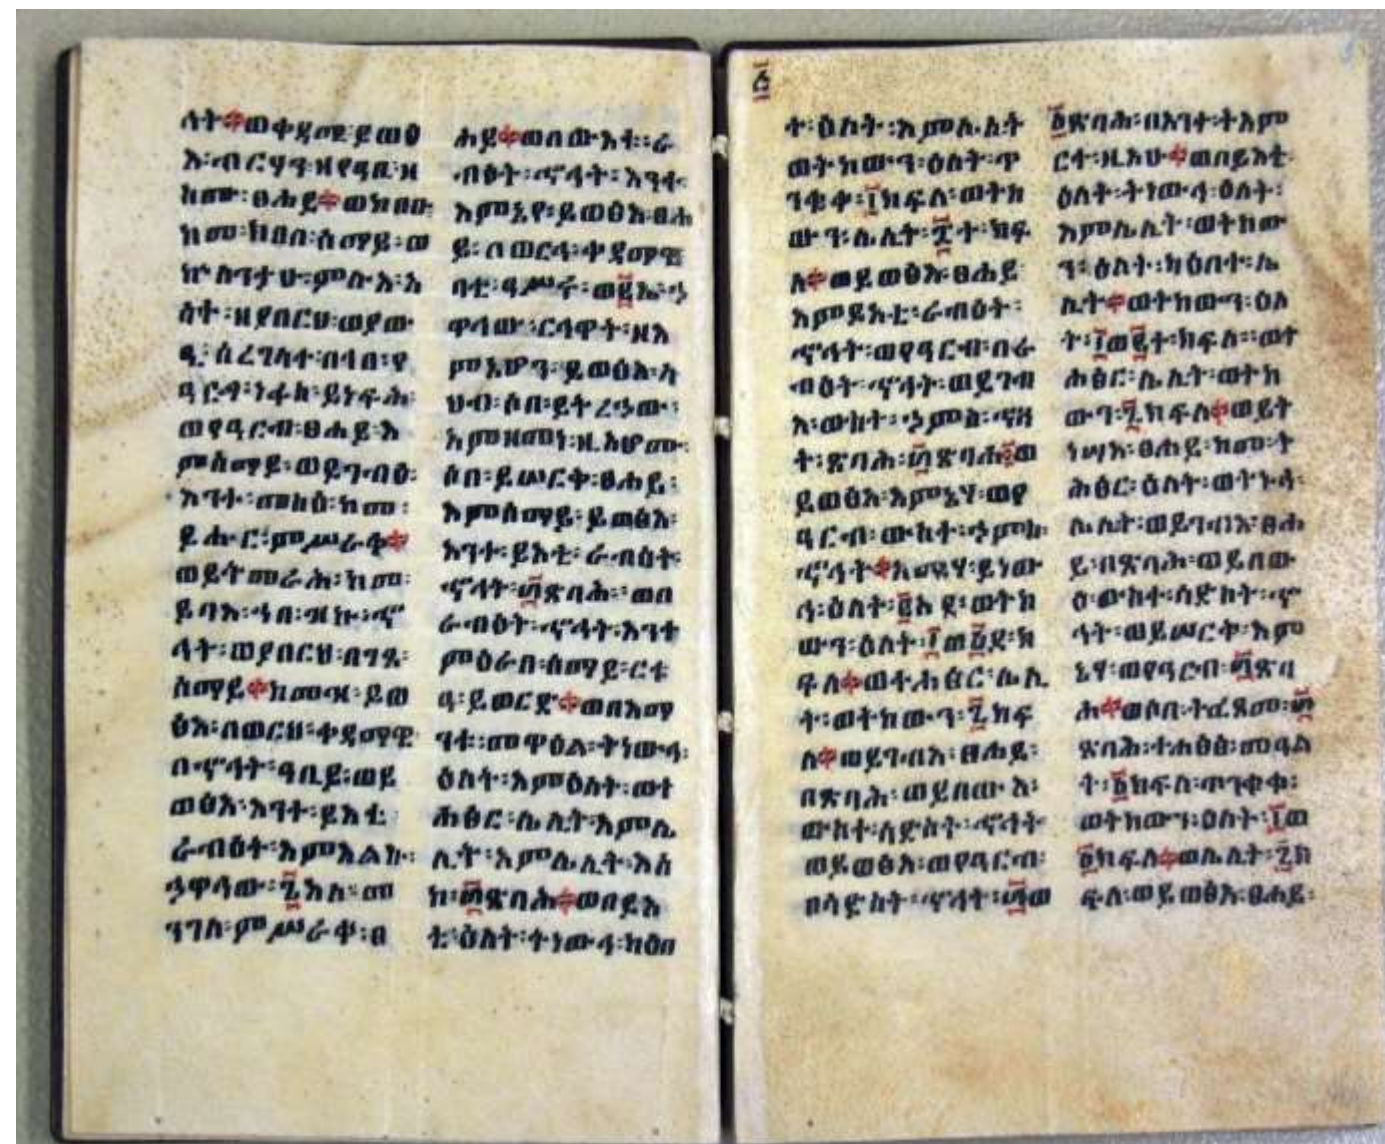 ሳት፨ወቀዳሚ፡ይወፅ
እ፡ብርሃን፡ዘየዓቢ፡ዘ
ስሙ፡ፀሐይ፨ወክበቡ፡
ከመ፡ክበበ፡ሰማይ፡ወ
ኵለንታሁ፡ምሉእ፡እ
ሳት፡ዘያበርህ፡ወያው
ዒ፡ሰረገላተ፡በኀበ፡የ
ዓርግ፡ነፋስ፡ይነፍሕ፡
ወየዓርብ፡ፀሐይ፡እ
ምሰማይ፡ወይገብዕ፡
እንተ፡መስዕ፡ከመ፡
ይሑር፡ምሥራቀ፨
ወይትመራሕ፡ከመ፡
ይባእ፡ኀበ፡ዝኩ፡ኆ
ኅት፡ወያበርህ፡በገጸ፡
ሰማይ፨ከመዝ፡ይወ
ፅእ፡በወርኅ፡ቀዳማዊ፡
በኆኅት፡ዓቢይ፡ወይ
ወፅእ፡እንተ፡ይእቲ
ራብዕት፡እምእልኩ፡
ኃዋኅው፡፮እለ፡መ
ንገለ፡ምሥራቀ፡ፀ
ሐይ፨ወበውእቱ፡ራ
ብዕት፡ኆኅት፡እንተ፡
እምኔየ፡ይወፅእ፡ፀሐ
ይ፡በወርኅ፡ቀዳማዊ
ባቲ፡ዓሥሩ፡ወ፪ኡ፡ኃ
ዋኅው፡ርኅዋት፡ዘእ
ምኔሆን፡ይወፅእ፡ላ
ህብ፡ሶበ፡ይትረኃው፡
እምዘመነ፡ዚአሆሙ፡
ሶበ፡ይሠርቅ፡ፀሐይ፡
እምሰማይ፡ይወፅእ፡
እንተ፡ይእቲ፡ራብዕት፡
ኆኅት፡፴ጽባሕ፡ወበ
ራብዕት፡ኆኅት፡እንተ
ምዕራበ፡ሰማይ፡ርቱ
ዓ፡ይወርድ፨ወበእማ
ንቱ፡መዋዕል፡ትነውኅ፡
ዕለት፡እምዕለት፡ወት
ሐፅር፡ሌሊት፡እምሌ
ሊት፡እምሌሊት፡እስ
ከ፡፴ጽባሕ፨ወበይእ
ቲ፡ዕለት፡ትነውኅ፡ካዕበ
፩
ተ፡ዕለት፡እምሌሊት
ወትከውን፡ዕለት፡ጥ
ንቁቀ፡፲ክፍለ፡ወትከ
ውን፡ሌሊት፡፰ተ፡ክፍ
ለ፨ወይወፅእ፡ፀሐይ
እምይእቲ፡ራብዕት፡
ኆኅት፡ወየዓርብ፡በራ
ብዕት፡ኆኅት፡ወይገብ
እ፡ውስተ፡ኃምስ፡ኆኅ
ት፡ጽባሕ፡፴ጽባሕ፡ወ
ይወፅእ፡እምኔሃ፡ወየ
ዓርብ፡ውስተ፡ኃምስ፡
ኆኅት፨እሜሃ፡ይነው
ኅ፡ዕለት፡፪እደ፡ወትከ
ውን፡ዕለት፡፲ወ፩ደ፡ክ
ፍለ፨ወተሐፅር፡ሌሊ
ት፡ወትከውን፡፯ክፍ
ለ፨ወይገብእ፡ፀሐይ፡
በጽባሕ፡ወይበውእ፡
ውስተ፡ሳድስት፡ኆኅት
ወይወፅእ፡ወየዓርብ፡
በሳድስት፡ኆኅት፡፴ወ
፩ጽባሕ፡በእንተ፡ትእም
ርተ፡ዚአሁ፨ወበይእቲ፡
ዕለት፡ትነውኅ፡ዕለት፡
እምሌሊት፡ወትከው
ን፡ዕለት፡ካዕበተ፡ሌ
ሊት፨ወትከውን፡ዕለ
ት፡፲ወ፪ተ፡ክፍለ፡ወት
ሐፅር፡ሌሊት፡ወትከ
ውን፡፮ክፍለ፨ወይት
ነሣእ፡ፀሐይ፡ከመ፡ት
ሕፅር፡ዕለት፡ወትኑኅ፡
ሌሊት፡ወይገብእ፡ፀሐ
ይ፡በጽባሕ፡ወይበው
ዕ፡ውስተ፡ሳድስት፡ኆ
ኅት፡ወይሠርቅ፡እም
ኔሃ፡ወየዓርብ፡፴ጽባ
ሕ፨ወሶበ፡ተፈጸመ፡፴
ጽባሕ፡ተሐፅፅ፡መዓል
ት፡፩ክፍለ፡ጥንቁቀ፡
ወትከውን፡ዕለት፡፲ወ
፩ክፍለ፨ወሌሊት፡፯ክ
ፍለ፡ወይወፅእ፡ፀሐይ፡